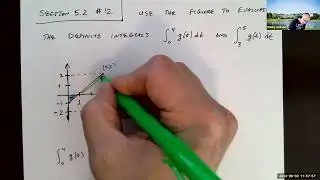 SECTION 5.2 #12 USE THE FIGURE TO EVALUATE
THE DEFINITE INTEGRALS ∫₀⁴ g(t) dt AND ∫₃⁵ g(t) dt
2
1
-1
-2
1
∫₀⁴ g(t)